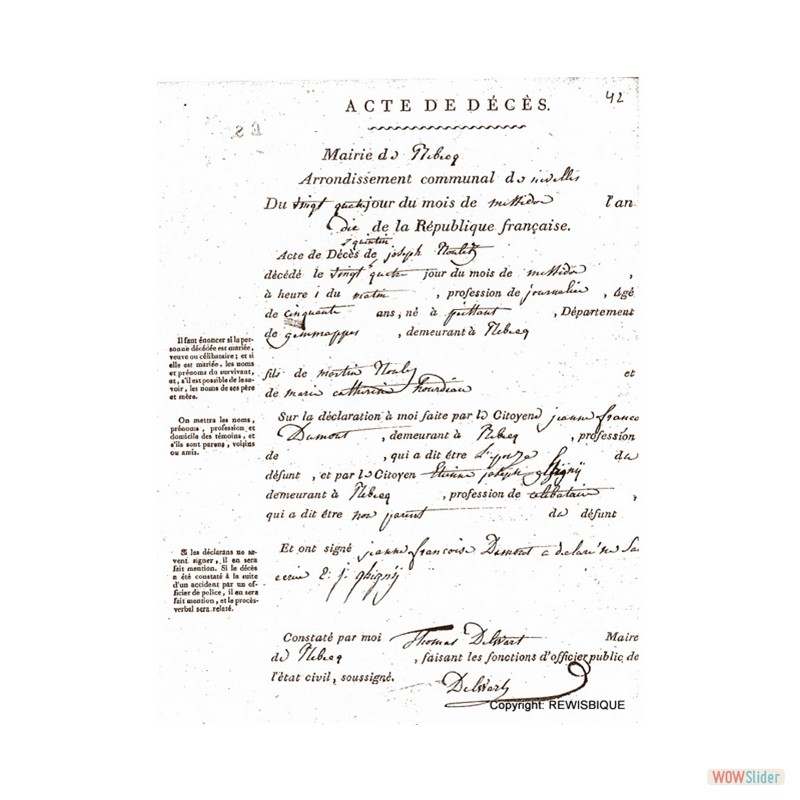 ACTE DE DÉCÈS.
42
Mairie de Rebecq
Arrondissement communal de nivelles
Du vingt quatre jour du mois de messidor l'an
dix de la République française.
Acte de Décès de joseph
quintin
décédé le vingt quatre jour du mois de messidor ,
à heure 1 du matin , profession de journalier , âgé
de cinquante ans, né à , Département
de gemmappes , demeurant à Rebecq
Il faut énoncer si la per-
sonne décédée est mariée,
veuve ou célibataire ; et si
elle est mariée, les noms
et prénoms du survivant,
et, s'il est possible de le sa-
voir, les noms de ses père
et mère.
fils de martin et
de marie catherine
On mettra les noms,
prénoms, profession et
domicile des témoins, et
s'ils sont parens, voisins
ou amis.
Sur la déclaration à moi faite par la Citoyenne jeanne
Dumont , demeurant à Rebecq , profession
de , qui a dit être L'épouse du
défunt , et par le Citoyen Etienne joseph ghigny
demeurant à Rebecq , profession de celibataire ,
qui a dit être non parent du défunt
Si les déclarans ne sa-
vent signer, il en sera
fait mention. Si le décès
a été constaté à la suite
d'un accident par un of-
ficier de police, il en sera
fait mention, et le procès-
verbal sera relaté.
Et ont signé jeanne françoise Dumont a declaré ne Sa
E: j. ghigny
Constaté par moi Thomas Delwart Maire
de Rebecq , faisant les fonctions d'officier public de
l'état civil, soussigné.
Delwart
Copyright: REWISBIQUE
WOWSlider